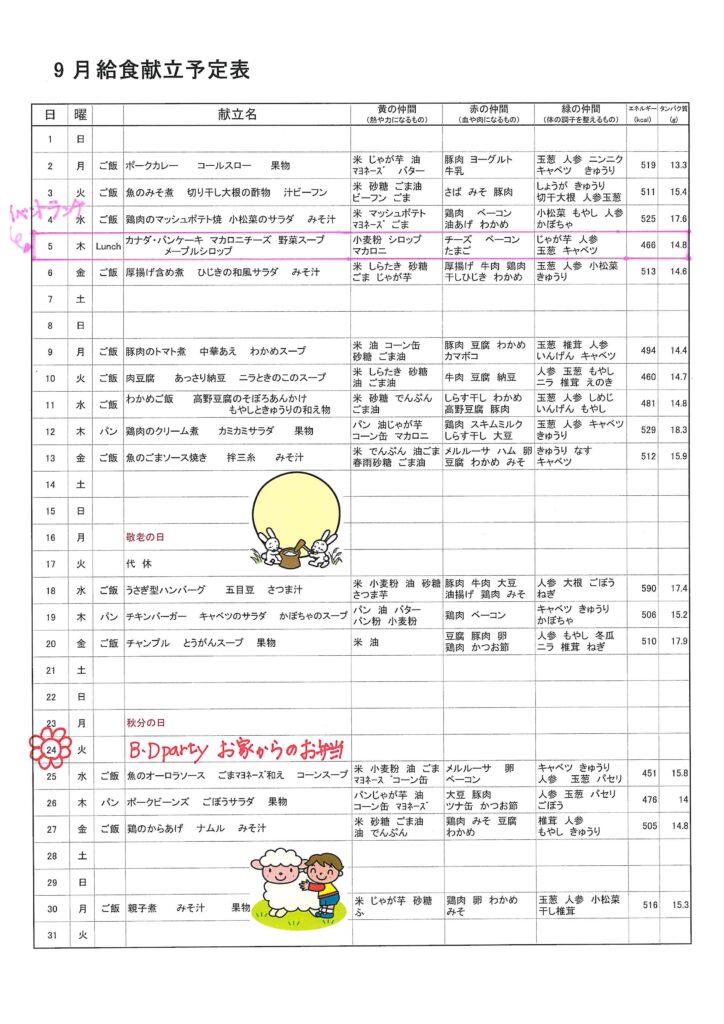 9月給食献立予定表
日 曜 献立名 黄の仲間 (熱や力になるもの) 赤の仲間 (血や肉になるもの) 緑の仲間 (体の調子を整えるもの) エネルギー (kcal) タンパク質 (g)
1 日
2 月 ご飯 ポークカレー コールスロー 果物 米 じゃが芋 油 マヨネーズ バター 豚肉 ヨーグルト 牛乳 玉葱 人参 ニンニク キャベツ きゅうり 519 13.3
3 火 ご飯 魚のみそ煮 切り干し大根の酢物 汁ビーフン 米 砂糖 ごま油 ビーフン ごま さば みそ 豚肉 しょうが きゅうり 切干大根 人参玉葱 511 15.4
イベントランチ
4 水 ご飯 鶏肉のマッシュポテト焼 小松菜のサラダ みそ汁 米 マッシュポテト マヨネーズ ごま 鶏肉 ベーコン 油あげ わかめ 小松菜 もやし 人参 かぼちゃ 525 17.6
5 木 Lunch カナダ・パンケーキ マカロニチーズ 野菜スープ メープルシロップ 小麦粉 シロップ マカロニ チーズ ベーコン たまご じゃが芋 人参 玉葱 キャベツ 466 14.8
6 金 ご飯 厚揚げ含め煮 ひじきの和風サラダ みそ汁 米 しらたき 砂糖 ごま じゃが芋 厚揚げ 牛肉 鶏肉 干しひじき わかめ 玉葱 人参 小松菜 きゅうり 513 14.6
7 土
8 日
9 月 ご飯 豚肉のトマト煮 中華あえ わかめスープ 米 油 コーン缶 砂糖 ごま油 豚肉 豆腐 わかめ カマボコ 玉葱 椎茸 人参 いんげん キャベツ 494 14.4
10 火 ご飯 肉豆腐 あっさり納豆 ニラときのこのスープ 米 しらたき 砂糖 油 ごま油 牛肉 豆腐 納豆 人参 玉葱 もやし ニラ 椎茸 えのき 460 14.7
11 水 ご飯 わかめご飯 高野豆腐のそぼろあんかけ もやしときゅうりの和え物 米 砂糖 でんぷん ごま油 しらす干し わかめ 高野豆腐 豚肉 玉葱 人参 しめじ いんげん もやし 481 14.8
12 木 パン 鶏肉のクリーム煮 カミカミサラダ 果物 パン 油じゃが芋 コーン缶 マカロニ 鶏肉 スキムミルク しらす干し 大豆 玉葱 人参 キャベツ きゅうり 529 18.3
13 金 ご飯 魚のごまソース焼き 拌三糸 みそ汁 米 でんぷん 油ごま 春雨砂糖 ごま油 メルルーサ ハム 卵 豆腐 わかめ みそ きゅうり なす キャベツ 512 15.9
14 土
15 日
16 月 敬老の日
17 火 代 休
18 水 ご飯 うさぎ型ハンバーグ 五目豆 さつま汁 米 小麦粉 油 砂糖 さつま芋 豚肉 牛肉 大豆 油揚げ 鶏肉 みそ 人参 大根 ごぼう ねぎ 590 17.4
19 木 パン チキンバーガー キャベツのサラダ かぼちゃのスープ パン 油 バター パン粉 小麦粉 鶏肉 ベーコン キャベツ きゅうり かぼちゃ 506 15.2
20 金 ご飯 チャンプル とうがんスープ 果物 米 油 豆腐 豚肉 卵 鶏肉 かつお節 人参 もやし 冬瓜 ニラ 椎茸 ねぎ 510 17.9
21 土
22 日
23 月 秋分の日
24 火 B・D party お家からのお弁当
25 水 ご飯 魚のオーロラソース ごまマヨネーズ和え コーンスープ 米 小麦粉 油 ごま マヨネーズ コーン缶 メルルーサ 卵 ベーコン キャベツ きゅうり 人参 玉葱 パセリ 451 15.8
26 木 パン ポークビーンズ ごぼうサラダ 果物 パンじゃが芋 油 コーン缶 マヨネーズ 大豆 豚肉 ツナ缶 かつお節 人参 玉葱 パセリ ごぼう 476 14
27 金 ご飯 鶏のからあげ ナムル みそ汁 米 砂糖 ごま油 油 でんぷん 鶏肉 みそ 豆腐 わかめ 椎茸 人参 もやし きゅうり 505 14.8
28 土
29 日
30 月 ご飯 親子煮 みそ汁 果物 米 じゃが芋 砂糖 ふ 鶏肉 卵 わかめ みそ 玉葱 人参 小松菜 干し椎茸 516 15.3
31 火